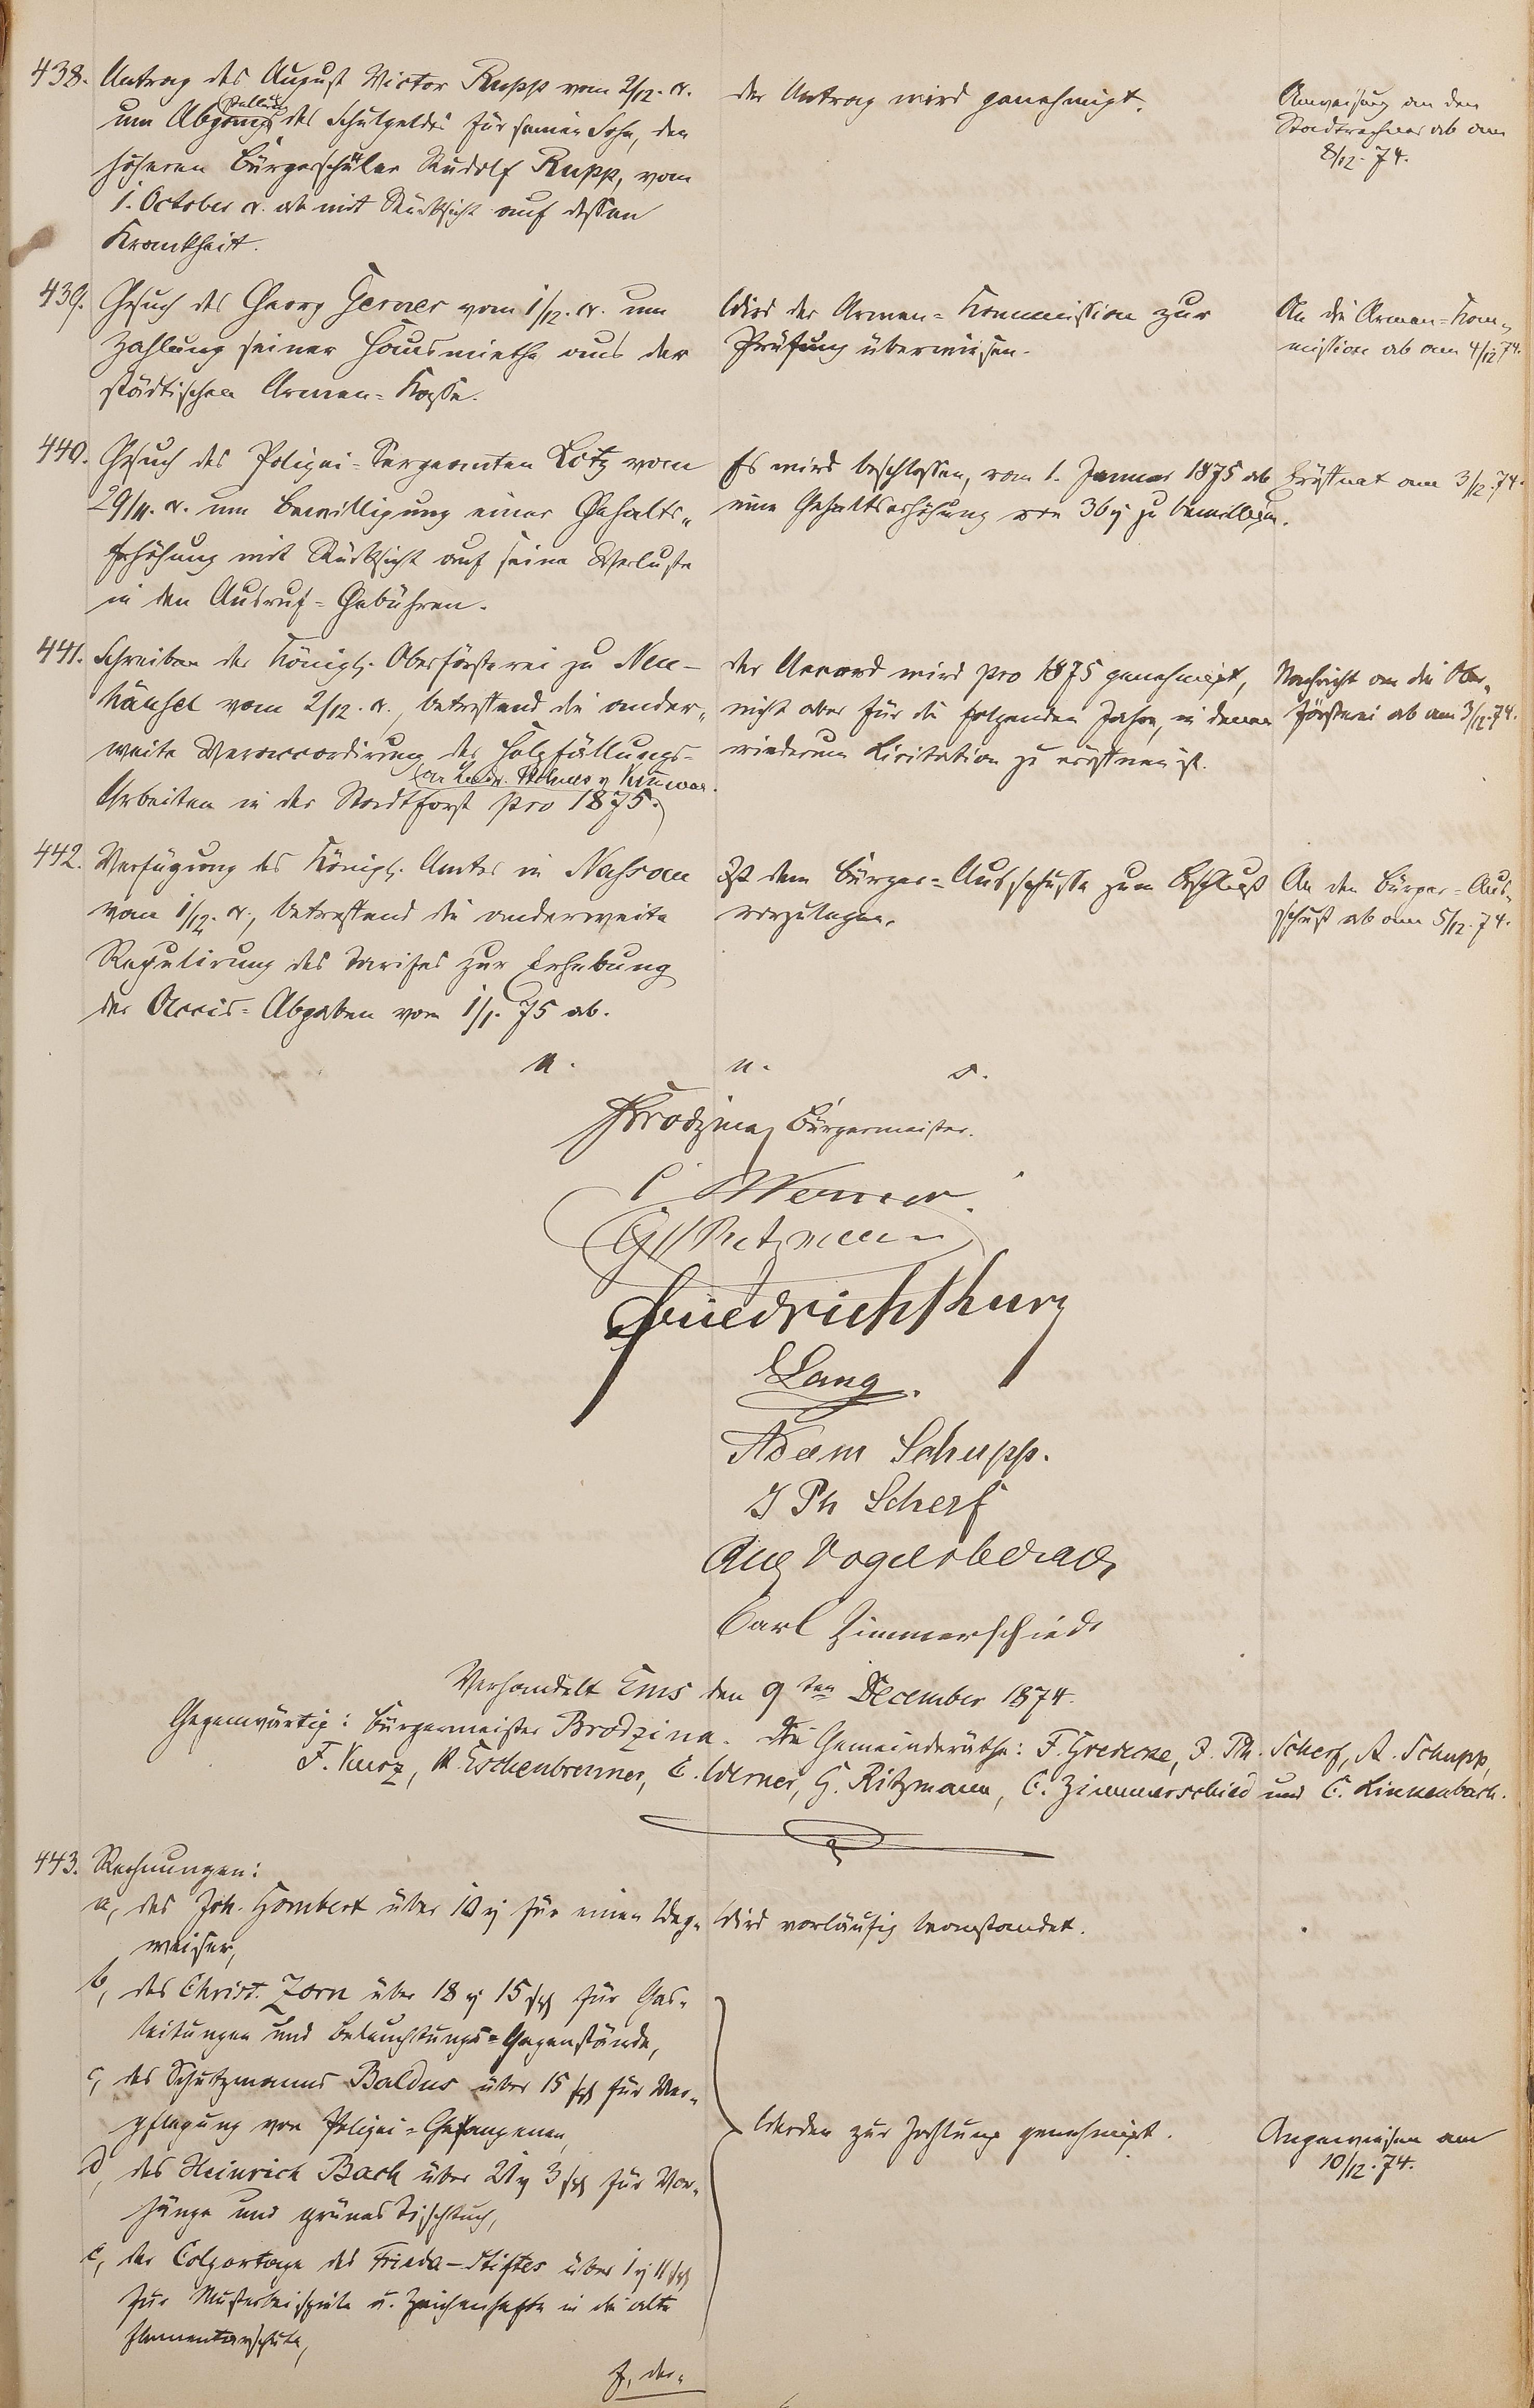 438. Antrag des August Victor Rupp vom 2/12. cr.
um Abstellung des Schulgeldes für seinen Sohn, den
höheren Bürgerschüler Rudolf Rupp, vom
1. October cr. ab mit Rücksicht auf dessen
Krankheit.
der Antrag wird genehmigt.
Anweisung an den
Stadtrechner ab am
8/12. 74.
439. Gesuch des Georg Gerner vom 1/12. cr. um
Zahlung seiner Hausmiethe aus der
städtischen Armen=Kasse.
Wird der Armen=Kommission zur
Prüfung überwiesen.
An die Armen=Kom„
mission ab am 4/12. 74.
440. Gesuch des Polizei=Sergeanten Lotz vom
29/11. cr. um Bewilligung einer Gehalts„
Erhöhung mit Rücksicht auf seine Verluste
in den Ausruf=Gebühren.
Es wird beschlossen, vom 1. Januar 1875 ab
eine Gehaltserhöhung von 36 zu bewilligen.
Eröffnet am 3/12. 74.
441. Schreiben der Königl. Oberförsterei zu Neu-
häusel vom 2/12. cr., betreffend die ander„
weite Veraccordirung der Holzfällungs-
Arbeiten in der Stadtforst pro 1875.
der Accord wird pro 1875 genehmigt,
nicht aber für die folgenden Jahre, in denen
wiederum Licitation zu eröffnen ist.
Nachricht an die Ober„
försterei ab am 3/12. 74.
442. Verfügung des Königl. Amtes in Nassau
vom 1/12. cr., betreffend die anderweite
Regulirung des Tarifes zur Erhebung
der Accis=Abgaben vom 1/1. 75 ab.
Ist dem Bürger=Ausschusse zum Beschluß
vorzulegen.
An den Bürger=Aus„
schuß ab am 5/12. 74.
Brodzina Bürgermeister.
C. Werner.
G Ritzmann
Friedrich Kurz
Lang.
Adam Schupp.
J Ph Scherf
Aug Vogelsberger
Carl Zimmerschied
Verhandelt Ems den 9ten December 1874.
Gegenwärtig: Bürgermeister Brodzina. Die Gemeinderäthe: J. Ph. Scherf, A. Schupp,
F. Kurz, A. Eschenbrenner, C. Werner, G. Ritzmann, C. Zimmerschied und C. Linkenbach.
443. Rechnungen:
a, des Joh. Hombert über 10 für einen Weg„
weiser,
Wird vorläufig beanstandet.
b, des Christ. Zorn über 18 15 sgr für Gas„
leitungen und Beleuchtungs=Gegenstände,
c, des Schutzmanns Baldus über 15 sgr für Ver„
pflegung von Polizei=Gefangenen,
d, des Heinrich Bach über 21 3 sgr für Vor„
hänge und grünes Tischtuch,
e, der Colportage des Frieda-Stiftes über 1 11 sgr
für Musterbeispiele u. Zeichenhefte in die alte
Elementarschule,
Werden zur Zahlung genehmigt.
Angewiesen am
10/12. 74.
f, der„